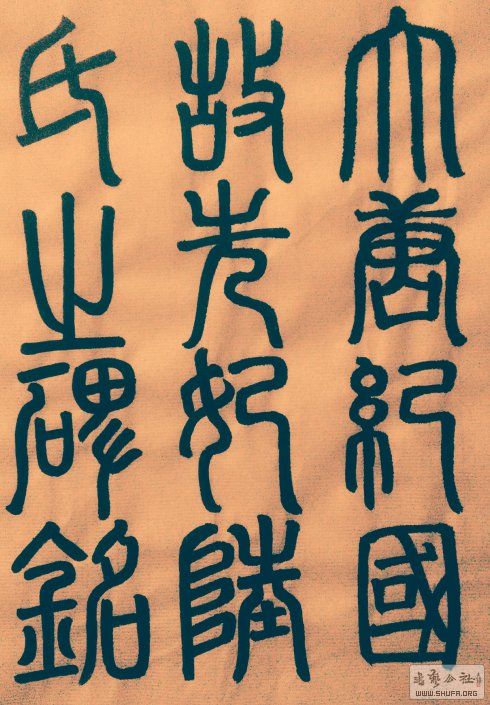 大唐紀國
故先妃陸
氏之碑銘
書藝公社
WWW.SHUFA.ORG